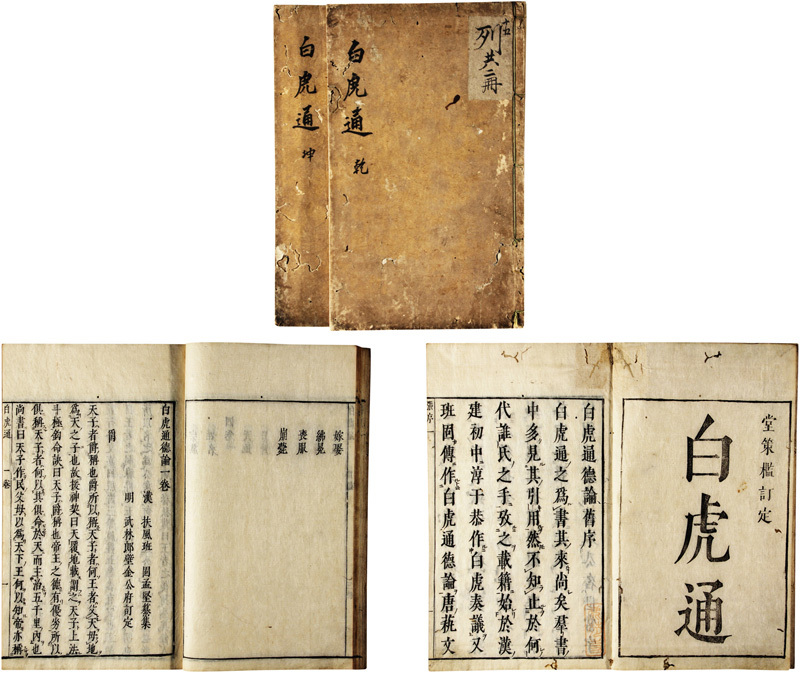 列共二冊
白虎通 乾
白虎通 坤
堂策檻訂定
白虎通
白虎通德論舊序
白虎通之爲書其來尚矣羣書
中多見其引用然不知止於何
代誰氏之手攷之載籍始於漢
建初中淳于恭作白虎奏議又
班固傳作白虎通德論唐蓺文
嫁娶
紼冕
喪服
崩薨
白虎通德論一卷
漢 扶風班 固孟堅纂集
明 武林郎壁金公府訂定
爵
天子者爵稱也爵所以稱天子者何王者父天母地
爲天之子也故援神契曰天覆地載謂之天子上法
斗極鈎命訣曰天子爵稱也帝王之德有優劣所以
俱稱天子者何以其俱命於天而主治五千里内也
尚書曰天子作民父母以爲天下王何以知帝亦稱
白虎通 一卷 一